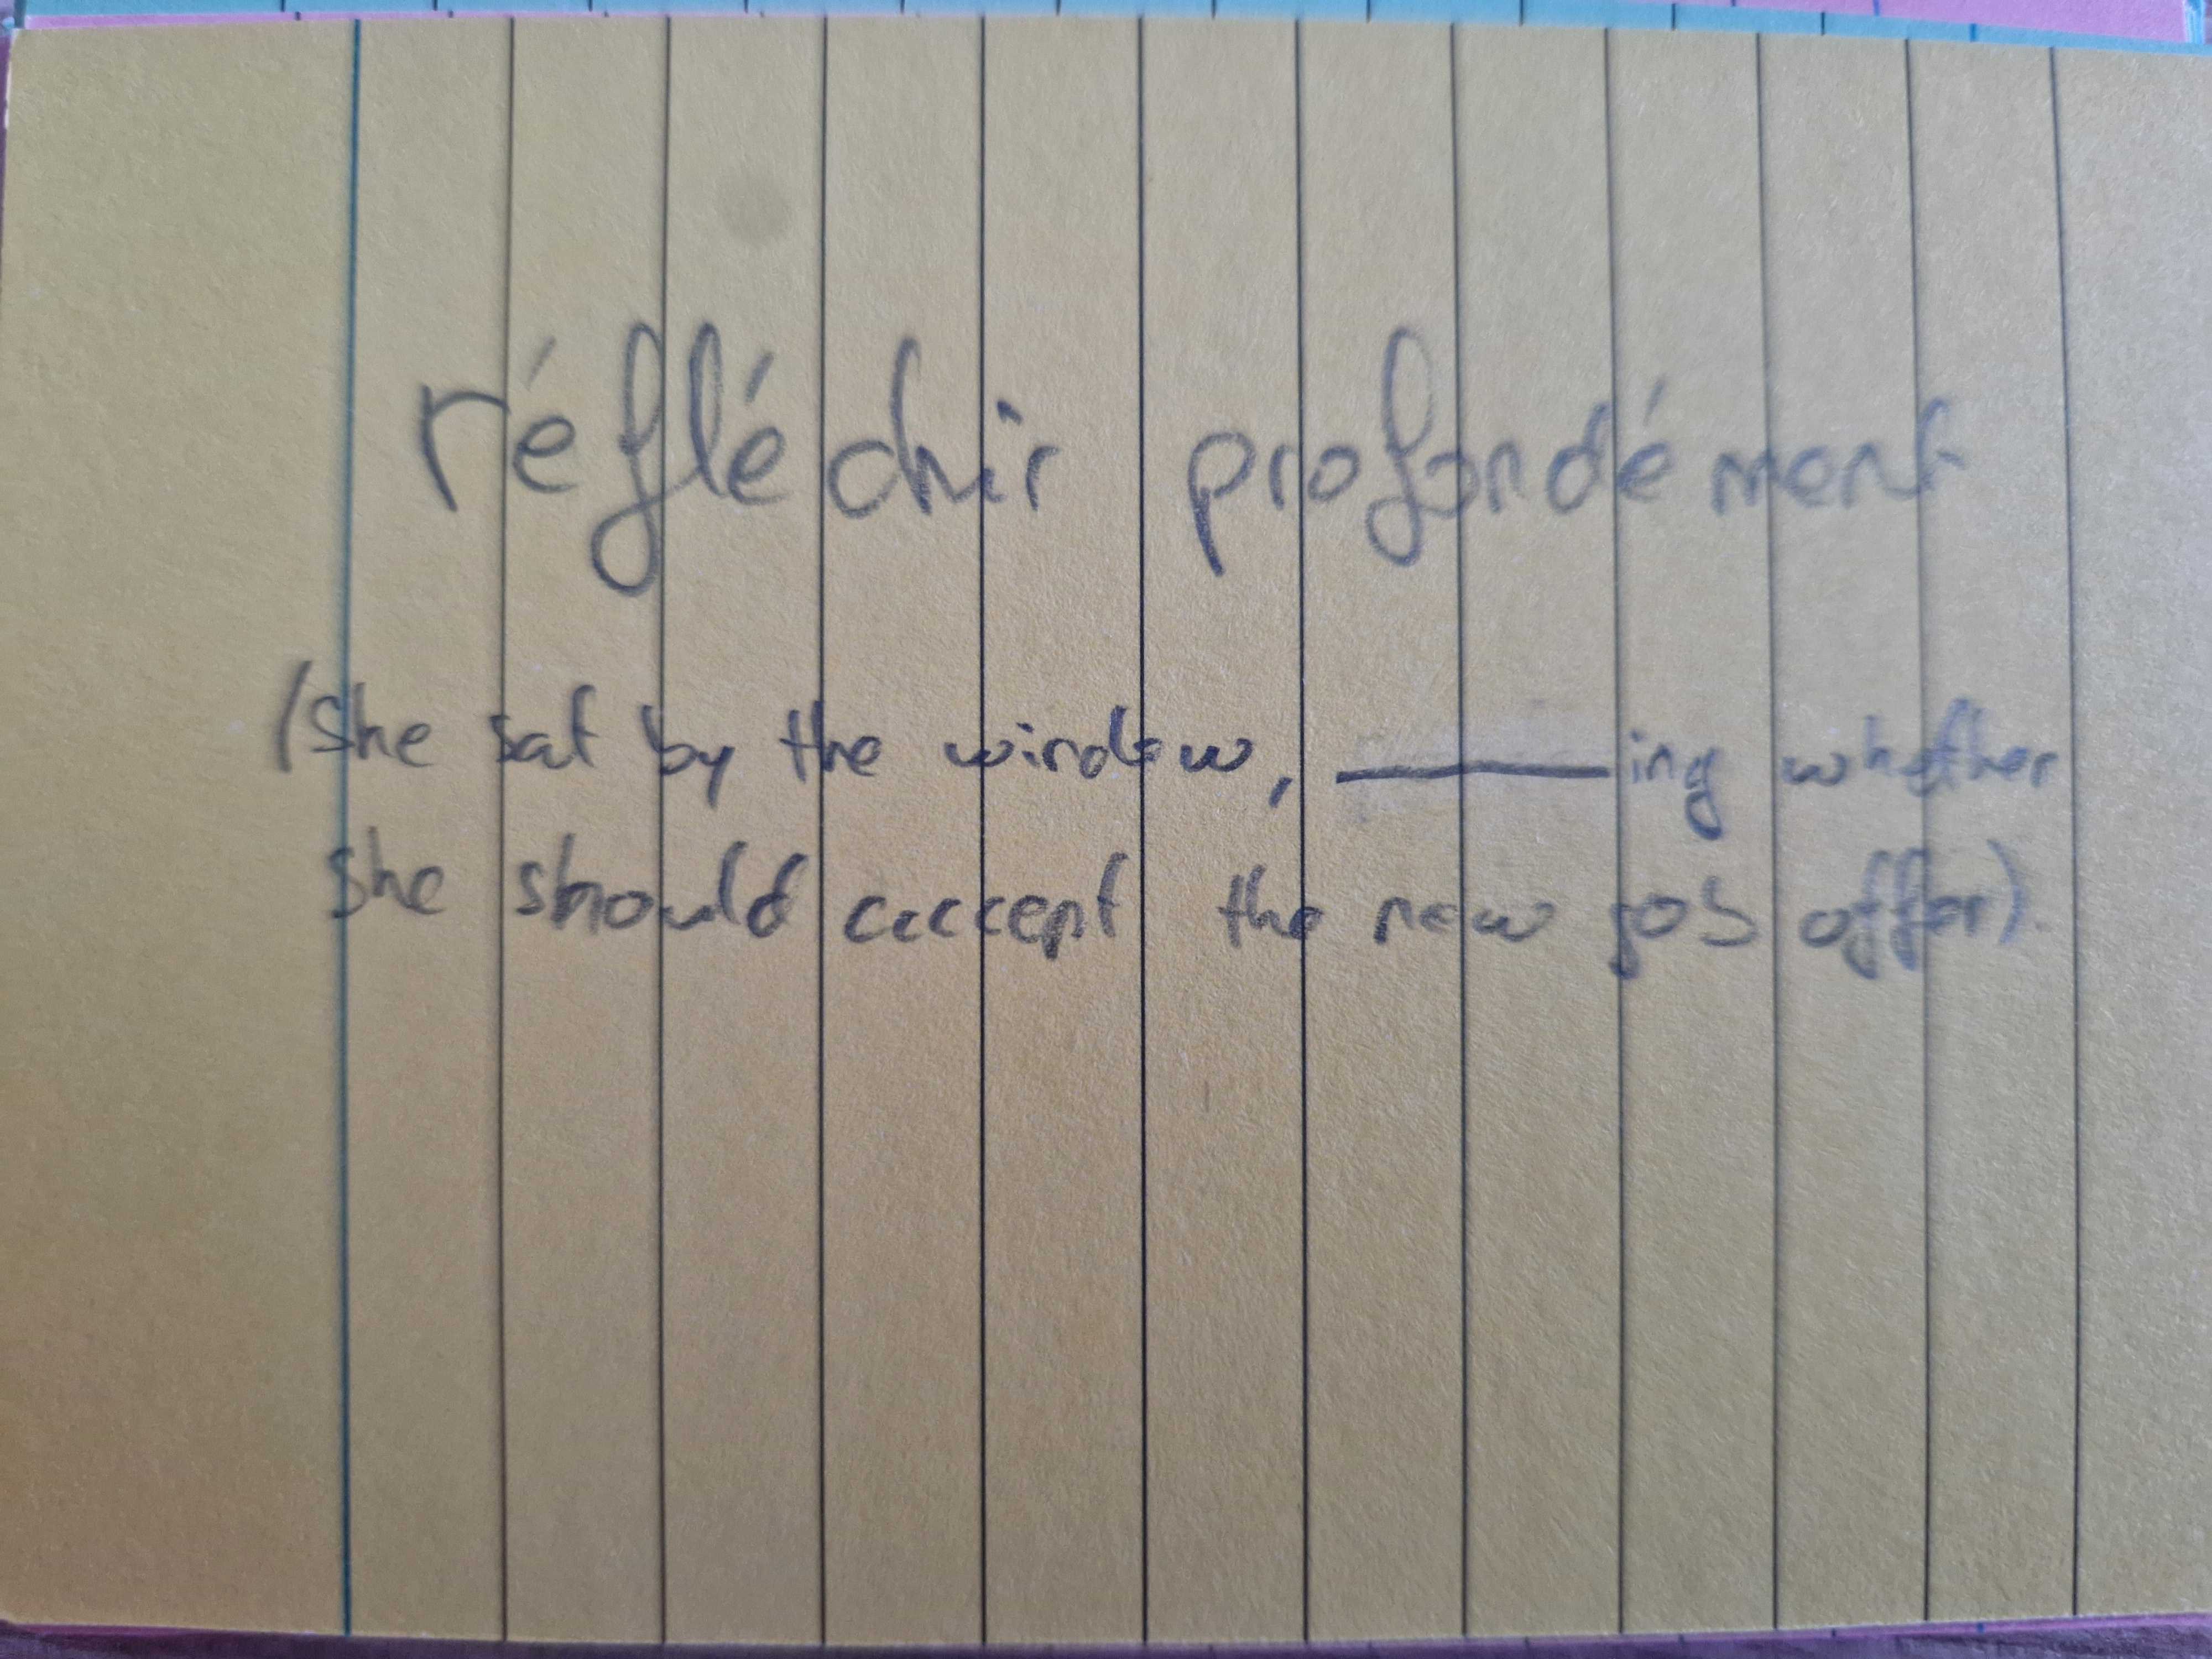 réfléchir profondément
(She sat by the window, ______ing whether
she should accept the new job offer).